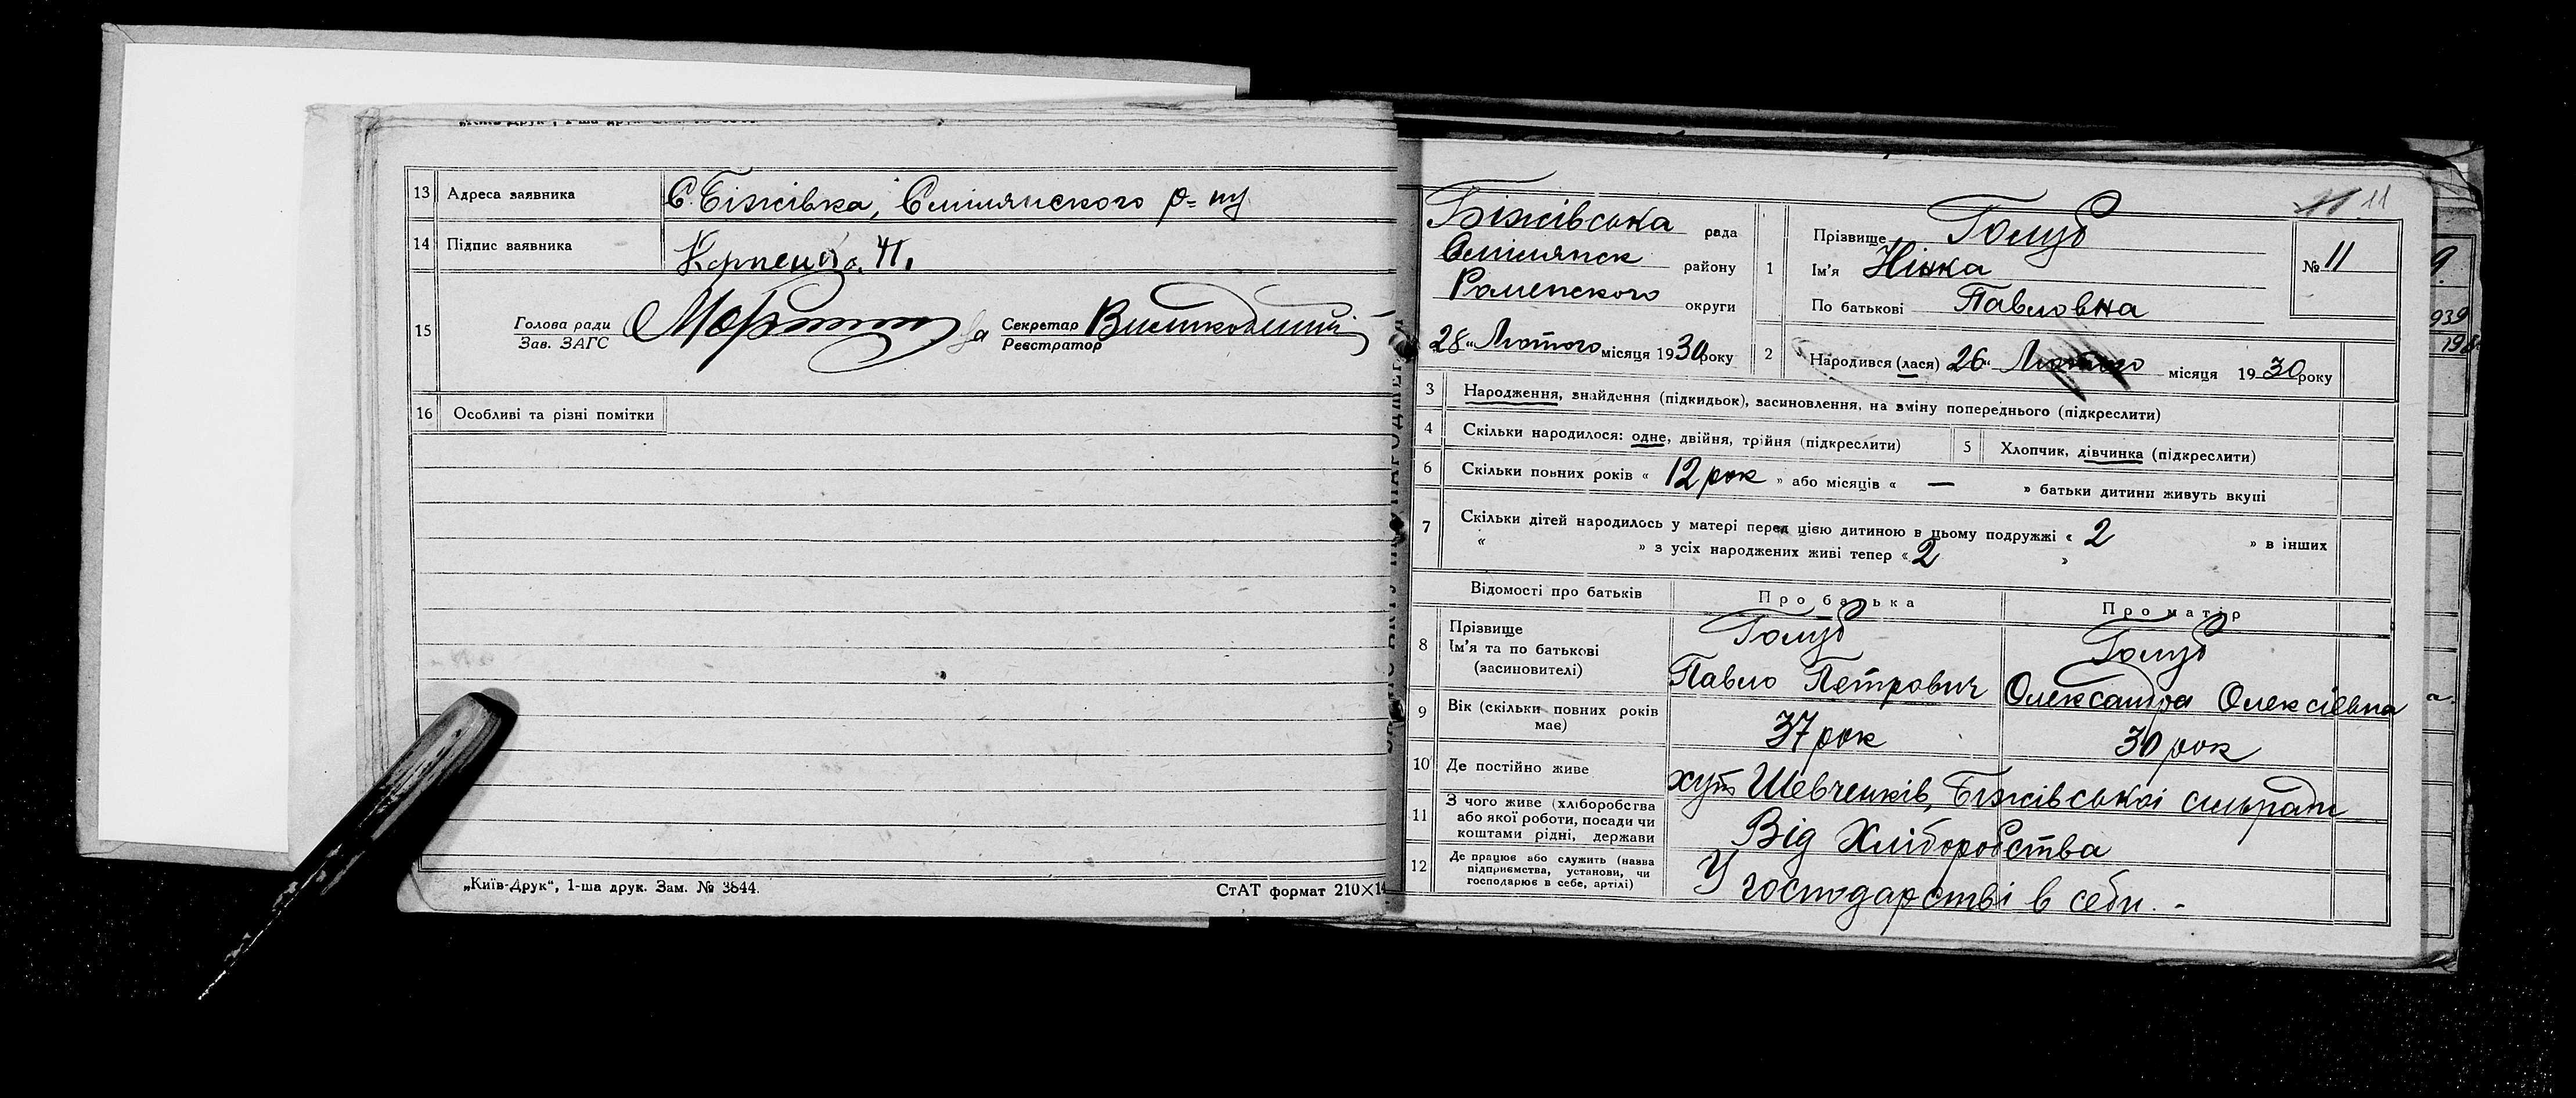 13 Адреса заявника С. Біжівка, Смілянского р-ну
14 Підпис заявника
15 Голова ради
Зав. ЗАГС
за Секретар
Реєстратор
16 Особливі та різні помітки
„Київ-Друк“, 1-ша друк. Зам. № 3844.
СтАТ формат 210×14
11
Біжівська рада
Смілянск району
Роменского округи
28 „ Лютого місяця 1930 року
1 Прізвище Голуб
Ім'я Нінка
По батькові Павловна
№ 11
2 Народився (лася) 26 „ Лютого місяця 1930 року
3 Народження, знайдення (підкидьок), засиновлення, на зміну попереднього (підкреслити)
4 Скільки народилося: одне, двійня, трійня (підкреслити)
5 Хлопчик, дівчинка (підкреслити)
6 Скільки повних років « 12 рок » або місяців « — » батьки дитини живуть вкупі
7 Скільки дітей народилось у матері перед цією дитиною в цьому подружжі « 2 » в інших
« » з усіх народжених живі тепер « 2 »
Відомості про батьків
Про батька
Про матір
8 Прізвище
Ім'я та по батькові
(засиновителі)
Голуб
Павло Петрович
Голуб
Олександра Олексіевна
9 Вік (скільки повних років
має)
37 рок
30 рок
10 Де постійно живе
хут Шевченків, Біжівської сильради
11 З чого живе (хліборобства
або якої роботи, посади чи
коштами рідні, держави
Від Хліборобства
12 Де працює або служить (назва
підприємства, установи, чи
господарює в себе, артілі)
У господарстві в себи. -